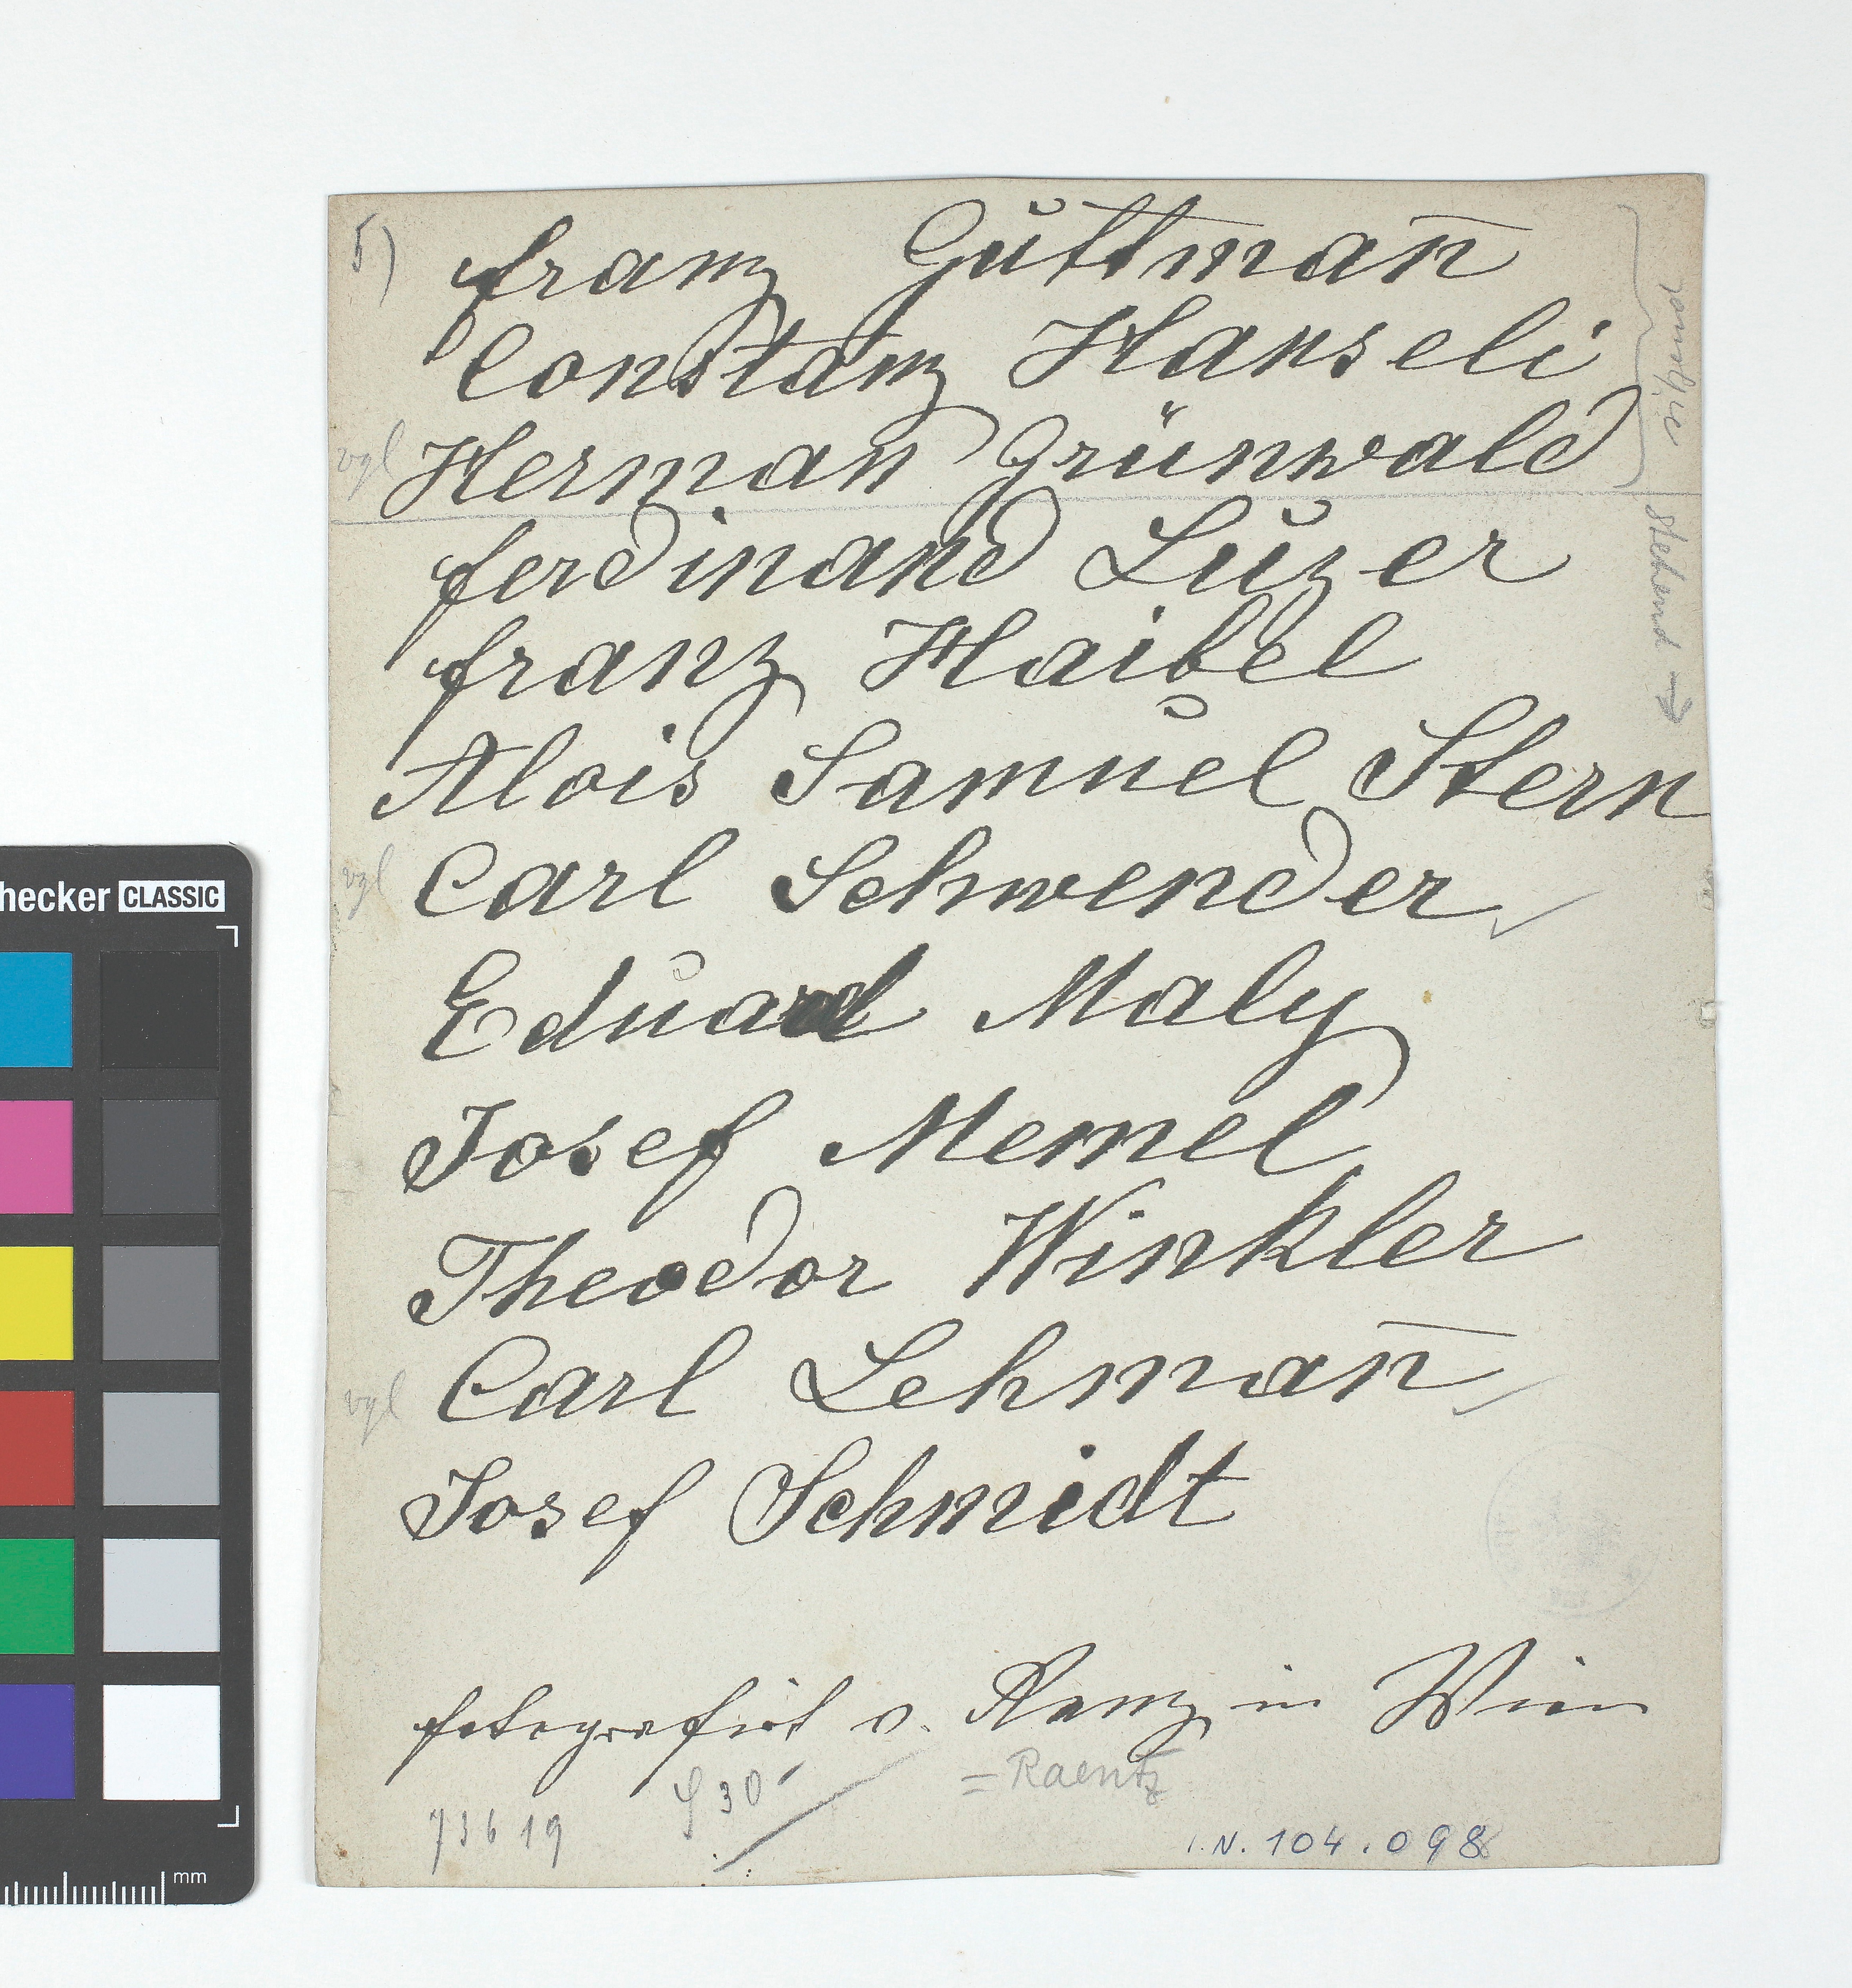 5) Franz Guttman̄
Constanz Hanseli
vgl Herman Grünwald
Ferdinand Luzer
Franz Haibel
Alois Samuel Stern
vgl Carl Schwender
Eduard Maly
Josef Memel
Theodor Winkler
vgl Carl Lehman̄
Josef Schmidt
stehend →
fotografirt v. Ranz in Wien
= Raentz
S 30
73619
I.N. 104.098
hecker CLASSIC
mm